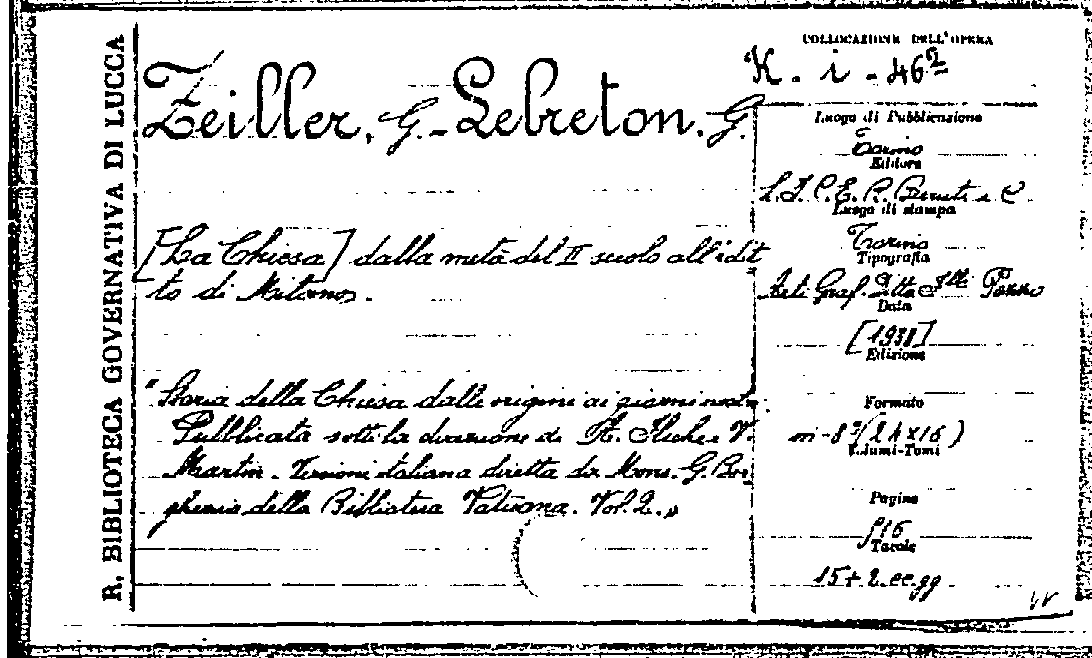 R. BIBLIOTECA GOVERNATIVA DI LUCCA
Zeiller, G. - Lebreton. G.
[La Chiesa] dalla metà del II secolo all'edit
to di Milano.
"Storia della Chiesa dalle origini ai giorni nostri.
Pubblicata sotto la direzione di A. Fliche e V.
Martin. Versione italiana diretta da Mons. G. Bor
ghezio della Biblioteca Vaticana. Vol. 2."
COLLOCAZIONE DELL'OPERA
K. i - 46²
Luogo di Pubblicazione
Torino
Editore
L.I.C.E. R. Berruti e C.
Luogo di stampa
Torino
Tipografia
Arti Graf. Ditta F.lli Pozzo
Data
[1938]
Edizione
Formato
in-8º (24x16)
Volumi-Tomi
Pagine
516
Tavole
15 + 2